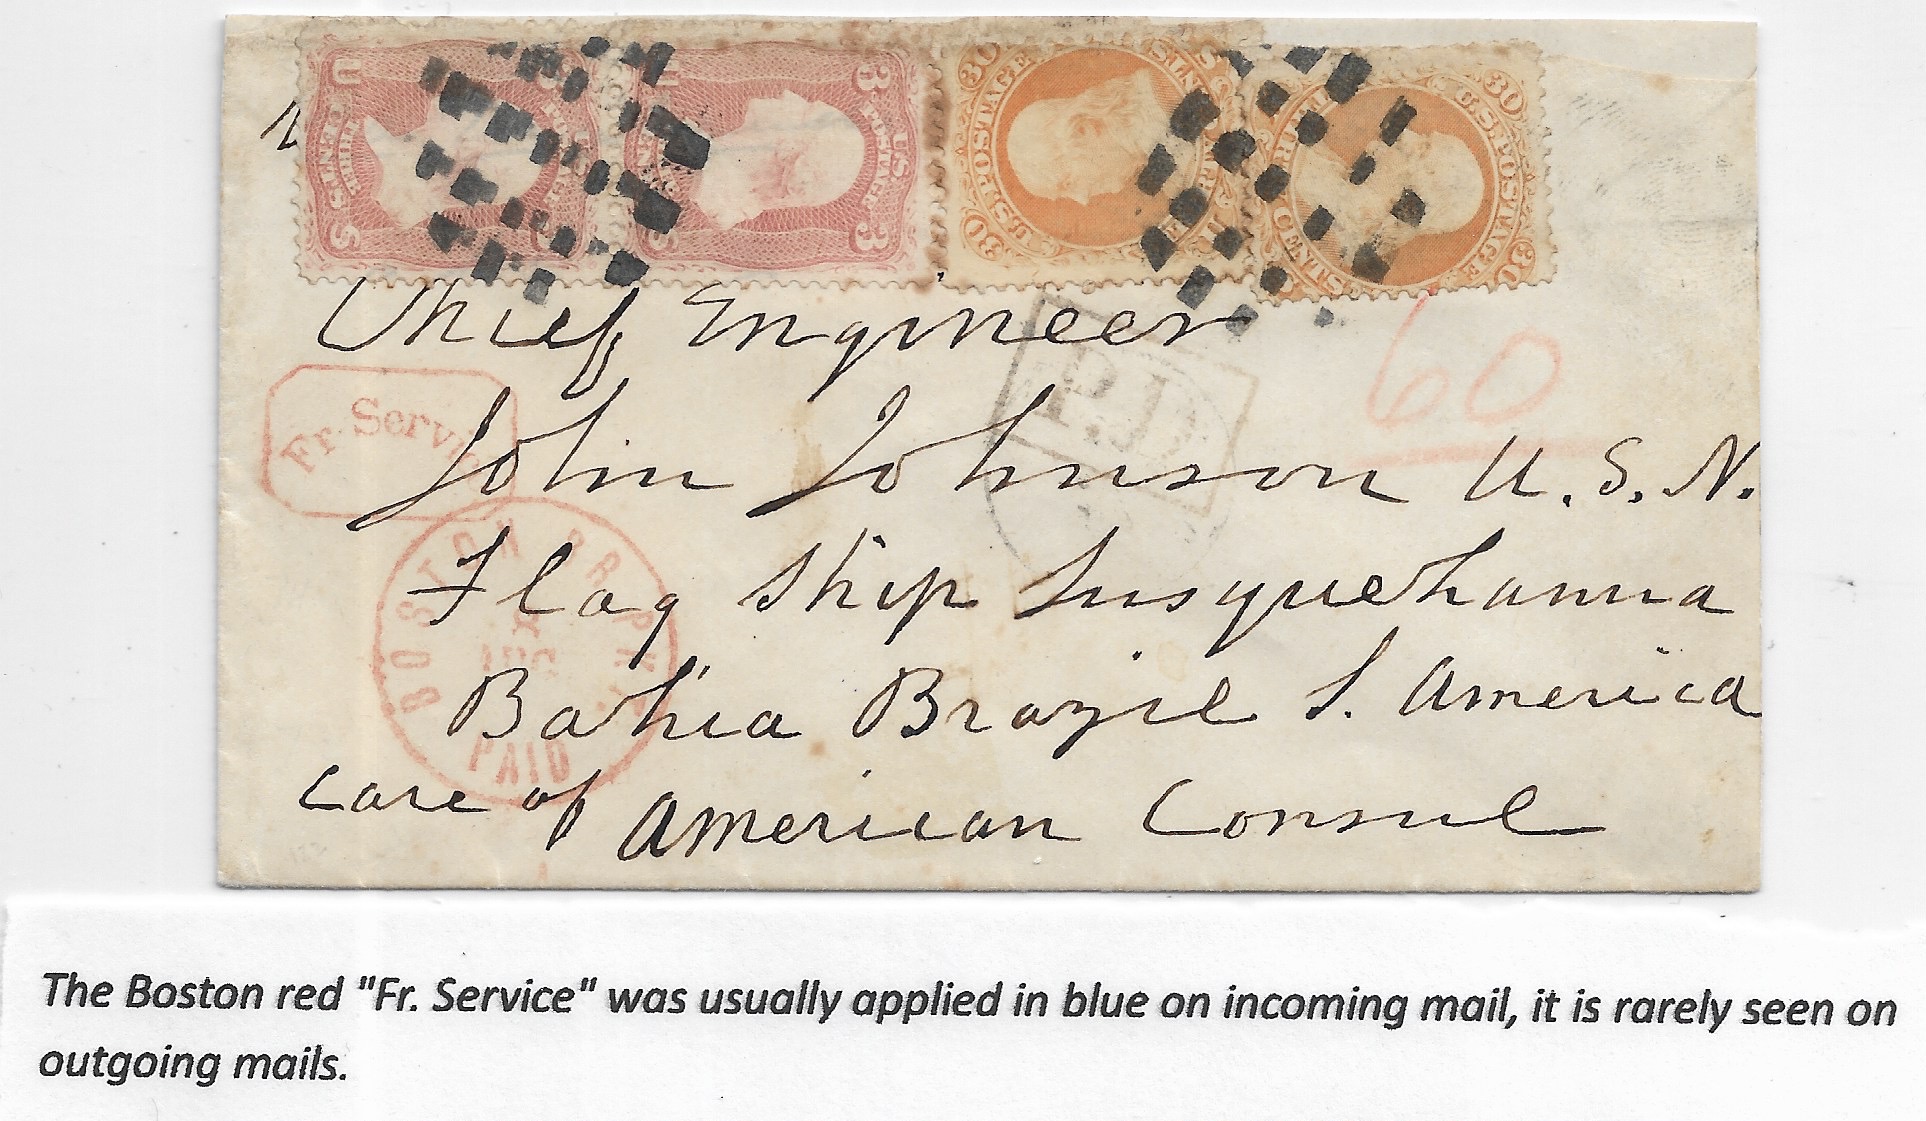 U THREE CENTS 3 U.S. POSTAGE 3
30 U.S. POSTAGE 30 U.S. POSTAGE 30 CENTS
Chief Engineer
60
P.D.
Fr. Service
John Johnson U.S.N.
Flag Ship Susquehanna
BOSTON BR. PK.
DEC
PAID
Bahia Brazil S. America
care of American Consul
The Boston red "Fr. Service" was usually applied in blue on incoming mail, it is rarely seen on
outgoing mails.